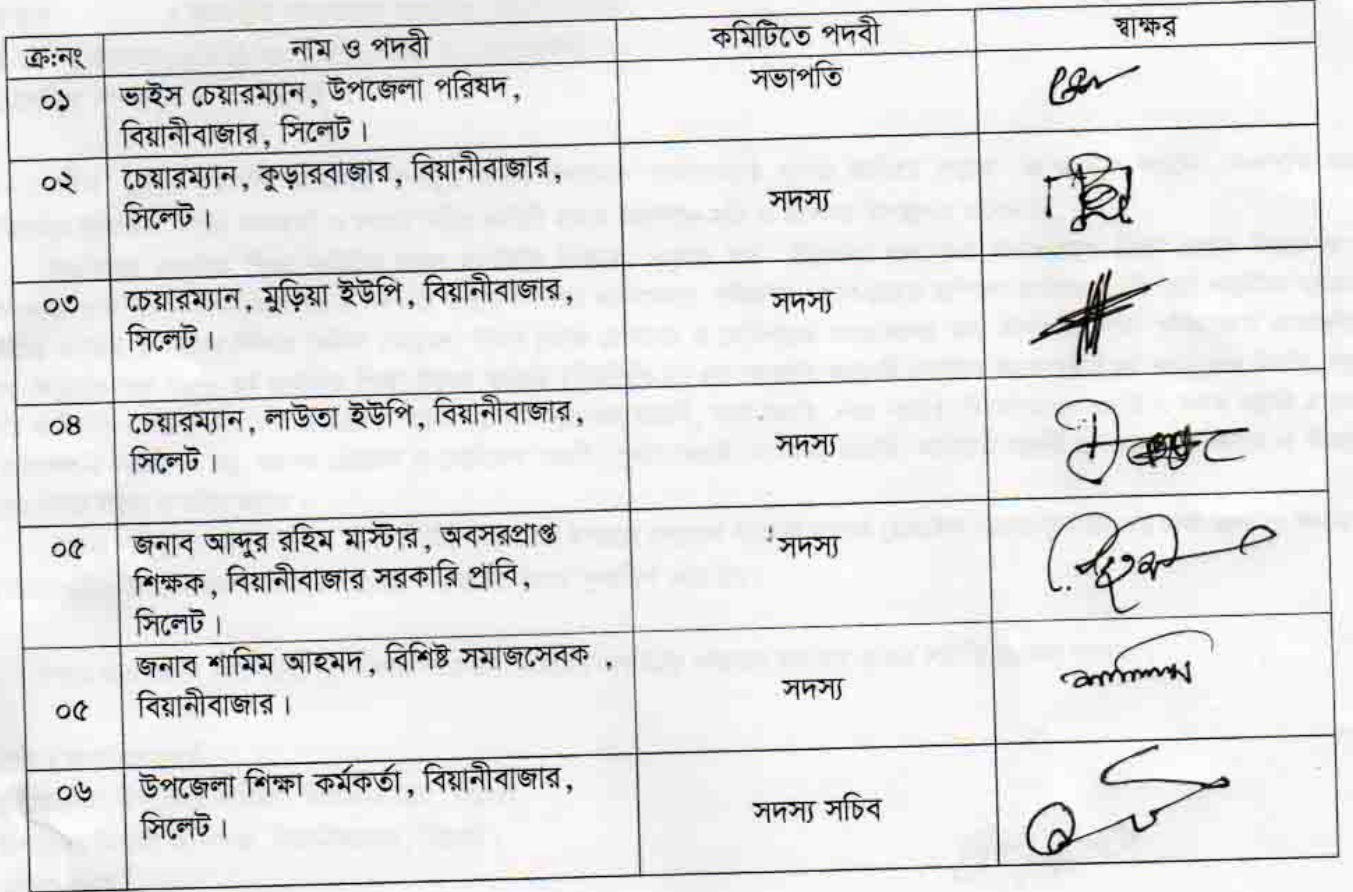 ক্র:নং নাম ও পদবী কমিটিতে পদবী স্বাক্ষর
০১ ভাইস চেয়ারম্যান, উপজেলা পরিষদ, সভাপতি
বিয়ানীবাজার, সিলেট।
০২ চেয়ারম্যান, কুড়ারবাজার, বিয়ানীবাজার, সদস্য
সিলেট।
০৩ চেয়ারম্যান, মুড়িয়া ইউপি, বিয়ানীবাজার, সদস্য
সিলেট।
০৪ চেয়ারম্যান, লাউতা ইউপি, বিয়ানীবাজার, সদস্য
সিলেট।
০৫ জনাব আব্দুর রহিম মাস্টার, অবসরপ্রাপ্ত সদস্য
শিক্ষক, বিয়ানীবাজার সরকারি প্রাবি,
সিলেট।
০৫ জনাব শামিম আহমদ, বিশিষ্ট সমাজসেবক, সদস্য
বিয়ানীবাজার।
০৬ উপজেলা শিক্ষা কর্মকর্তা, বিয়ানীবাজার, সদস্য সচিব
সিলেট।